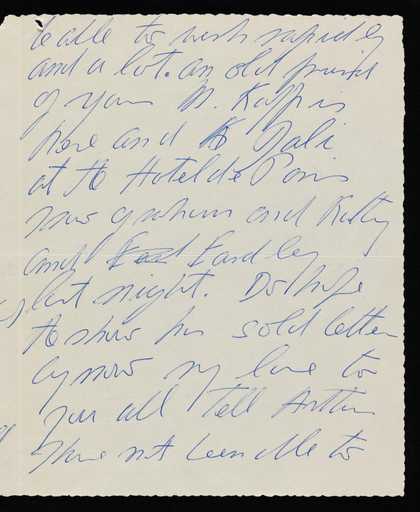 be able to work rapidly
and a lot. an old friend
of yours M. Kopp is
here and Dali
at the Hotel de Paris
saw graham and Kathy
and Eardley
last night. Do hope
the show has sold better
by now my love to
you all Tell Arthur
I have not been able to